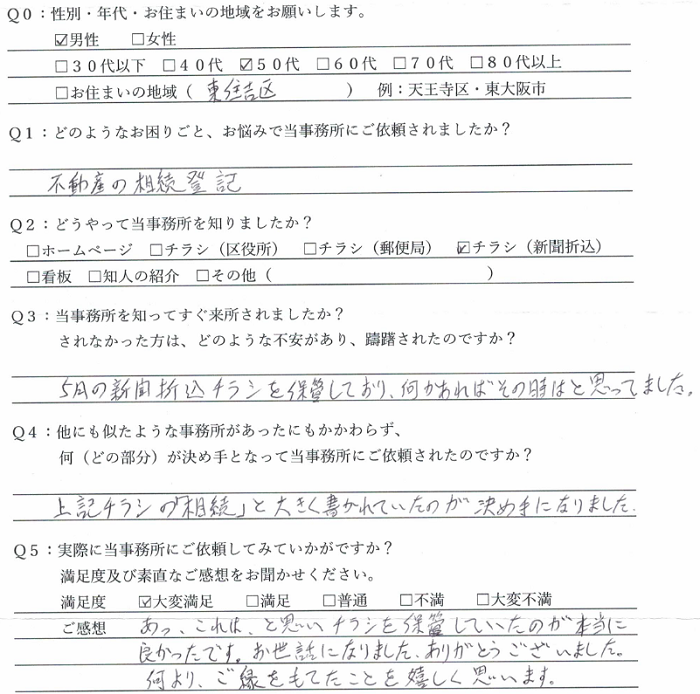 Q0：性別・年代・お住まいの地域をお願いします。
☑男性　□女性
□30代以下　□40代　☑50代　□60代　□70代　□80代以上
□お住まいの地域（　東住吉区　）　例：天王寺区・東大阪市
Q1：どのようなお困りごと、お悩みで当事務所にご依頼されましたか？
不動産の相続登記
Q2：どうやって当事務所を知りましたか？
□ホームページ　□チラシ（区役所）　□チラシ（郵便局）　☑チラシ（新聞折込）
□看板　□知人の紹介　□その他（　　　）
Q3：当事務所を知ってすぐ来所されましたか？
されなかった方は、どのような不安があり、躊躇されたのですか？
5月の新聞折込チラシを保管しており、何かあればその時はと思ってました。
Q4：他にも似たような事務所があったにもかかわらず、
何（どの部分）が決め手となって当事務所にご依頼されたのですか？
上記チラシの「相続」と大きく書かれていたのが決め手になりました．
Q5：実際に当事務所にご依頼してみていかがですか？
満足度及び素直なご感想をお聞かせください。
満足度　☑大変満足　□満足　□普通　□不満　□大変不満
ご感想　あっ、これは、と思いチラシを保管していたのが本当に
良かったです。お世話になりました、ありがとうございました。
何より、ご縁をもてたことを嬉しく思います。